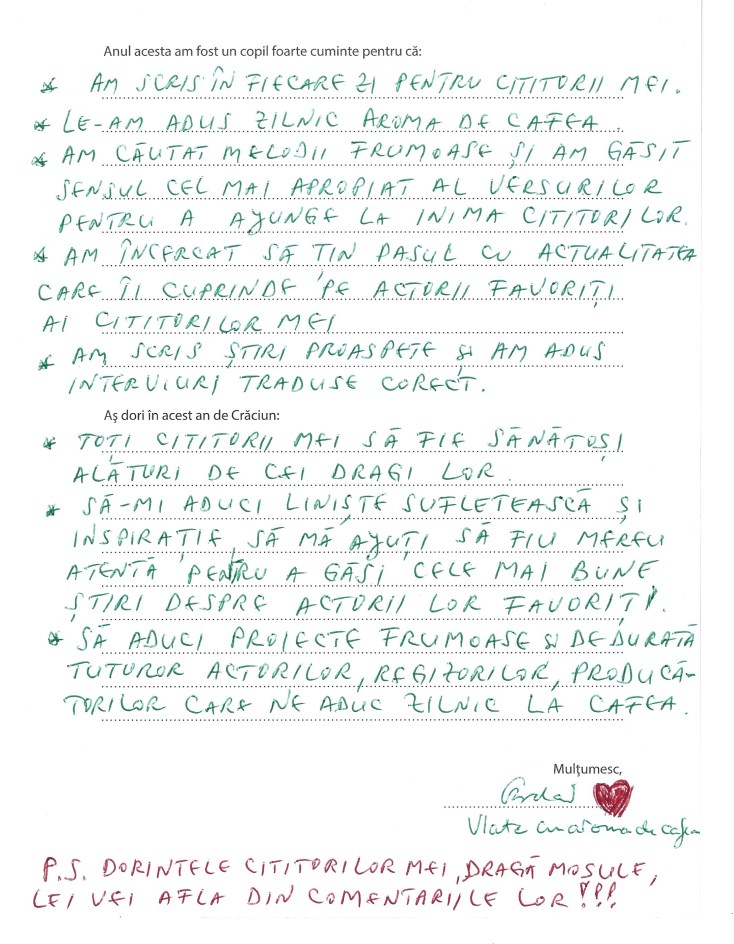 Anul acesta am fost un copil foarte cuminte pentru că:
* AM SCRIS ÎN FIECARE ZI PENTRU CITITORII MEI.
* LE-AM ADUS ZILNIC AROMA DE CAFEA.
* AM CĂUTAT MELODII FRUMOASE ȘI AM GĂSIT
SENSUL CEL MAI APROPIAT AL VERSURILOR
PENTRU A AJUNGE LA INIMA CITITORILOR.
* AM ÎNCERCAT SĂ ȚIN PASUL CU ACTUALITATEA
CARE ÎI CUPRINDE PE ACTORII FAVORIȚI
AI CITITORILOR MEI
* AM SCRIS ȘTIRI PROASPETE ȘI AM ADUS
INTERVIURI TRADUSE CORECT.
Aş dori în acest an de Crăciun:
* TOȚI CITITORII MEI SĂ FIE SĂNĂTOȘI
ALĂTURI DE CEI DRAGI LOR.
* SĂ-MI ADUCI LINIȘTE SUFLETEASCĂ ȘI
INSPIRAȚIE, SĂ MĂ AJUȚI SĂ FIU MEREU
ATENTĂ PENTRU A GĂSI CELE MAI BUNE
ȘTIRI DESPRE ACTORII LOR FAVORIȚI.
* SĂ ADUCI PROIECTE FRUMOASE ȘI DE DURATĂ
TUTUROR ACTORILOR, REGIZORILOR, PRODUCĂ-
TORILOR CARE NE ADUC ZILNIC LA CAFEA.
Mulţumesc,
Viata cu aroma de cafea
P.S. DORINTELE CITITORILOR MEI, DRAGĂ MOȘULE,
LEI VEI AFLA DIN COMENTARIILE LOR!!!